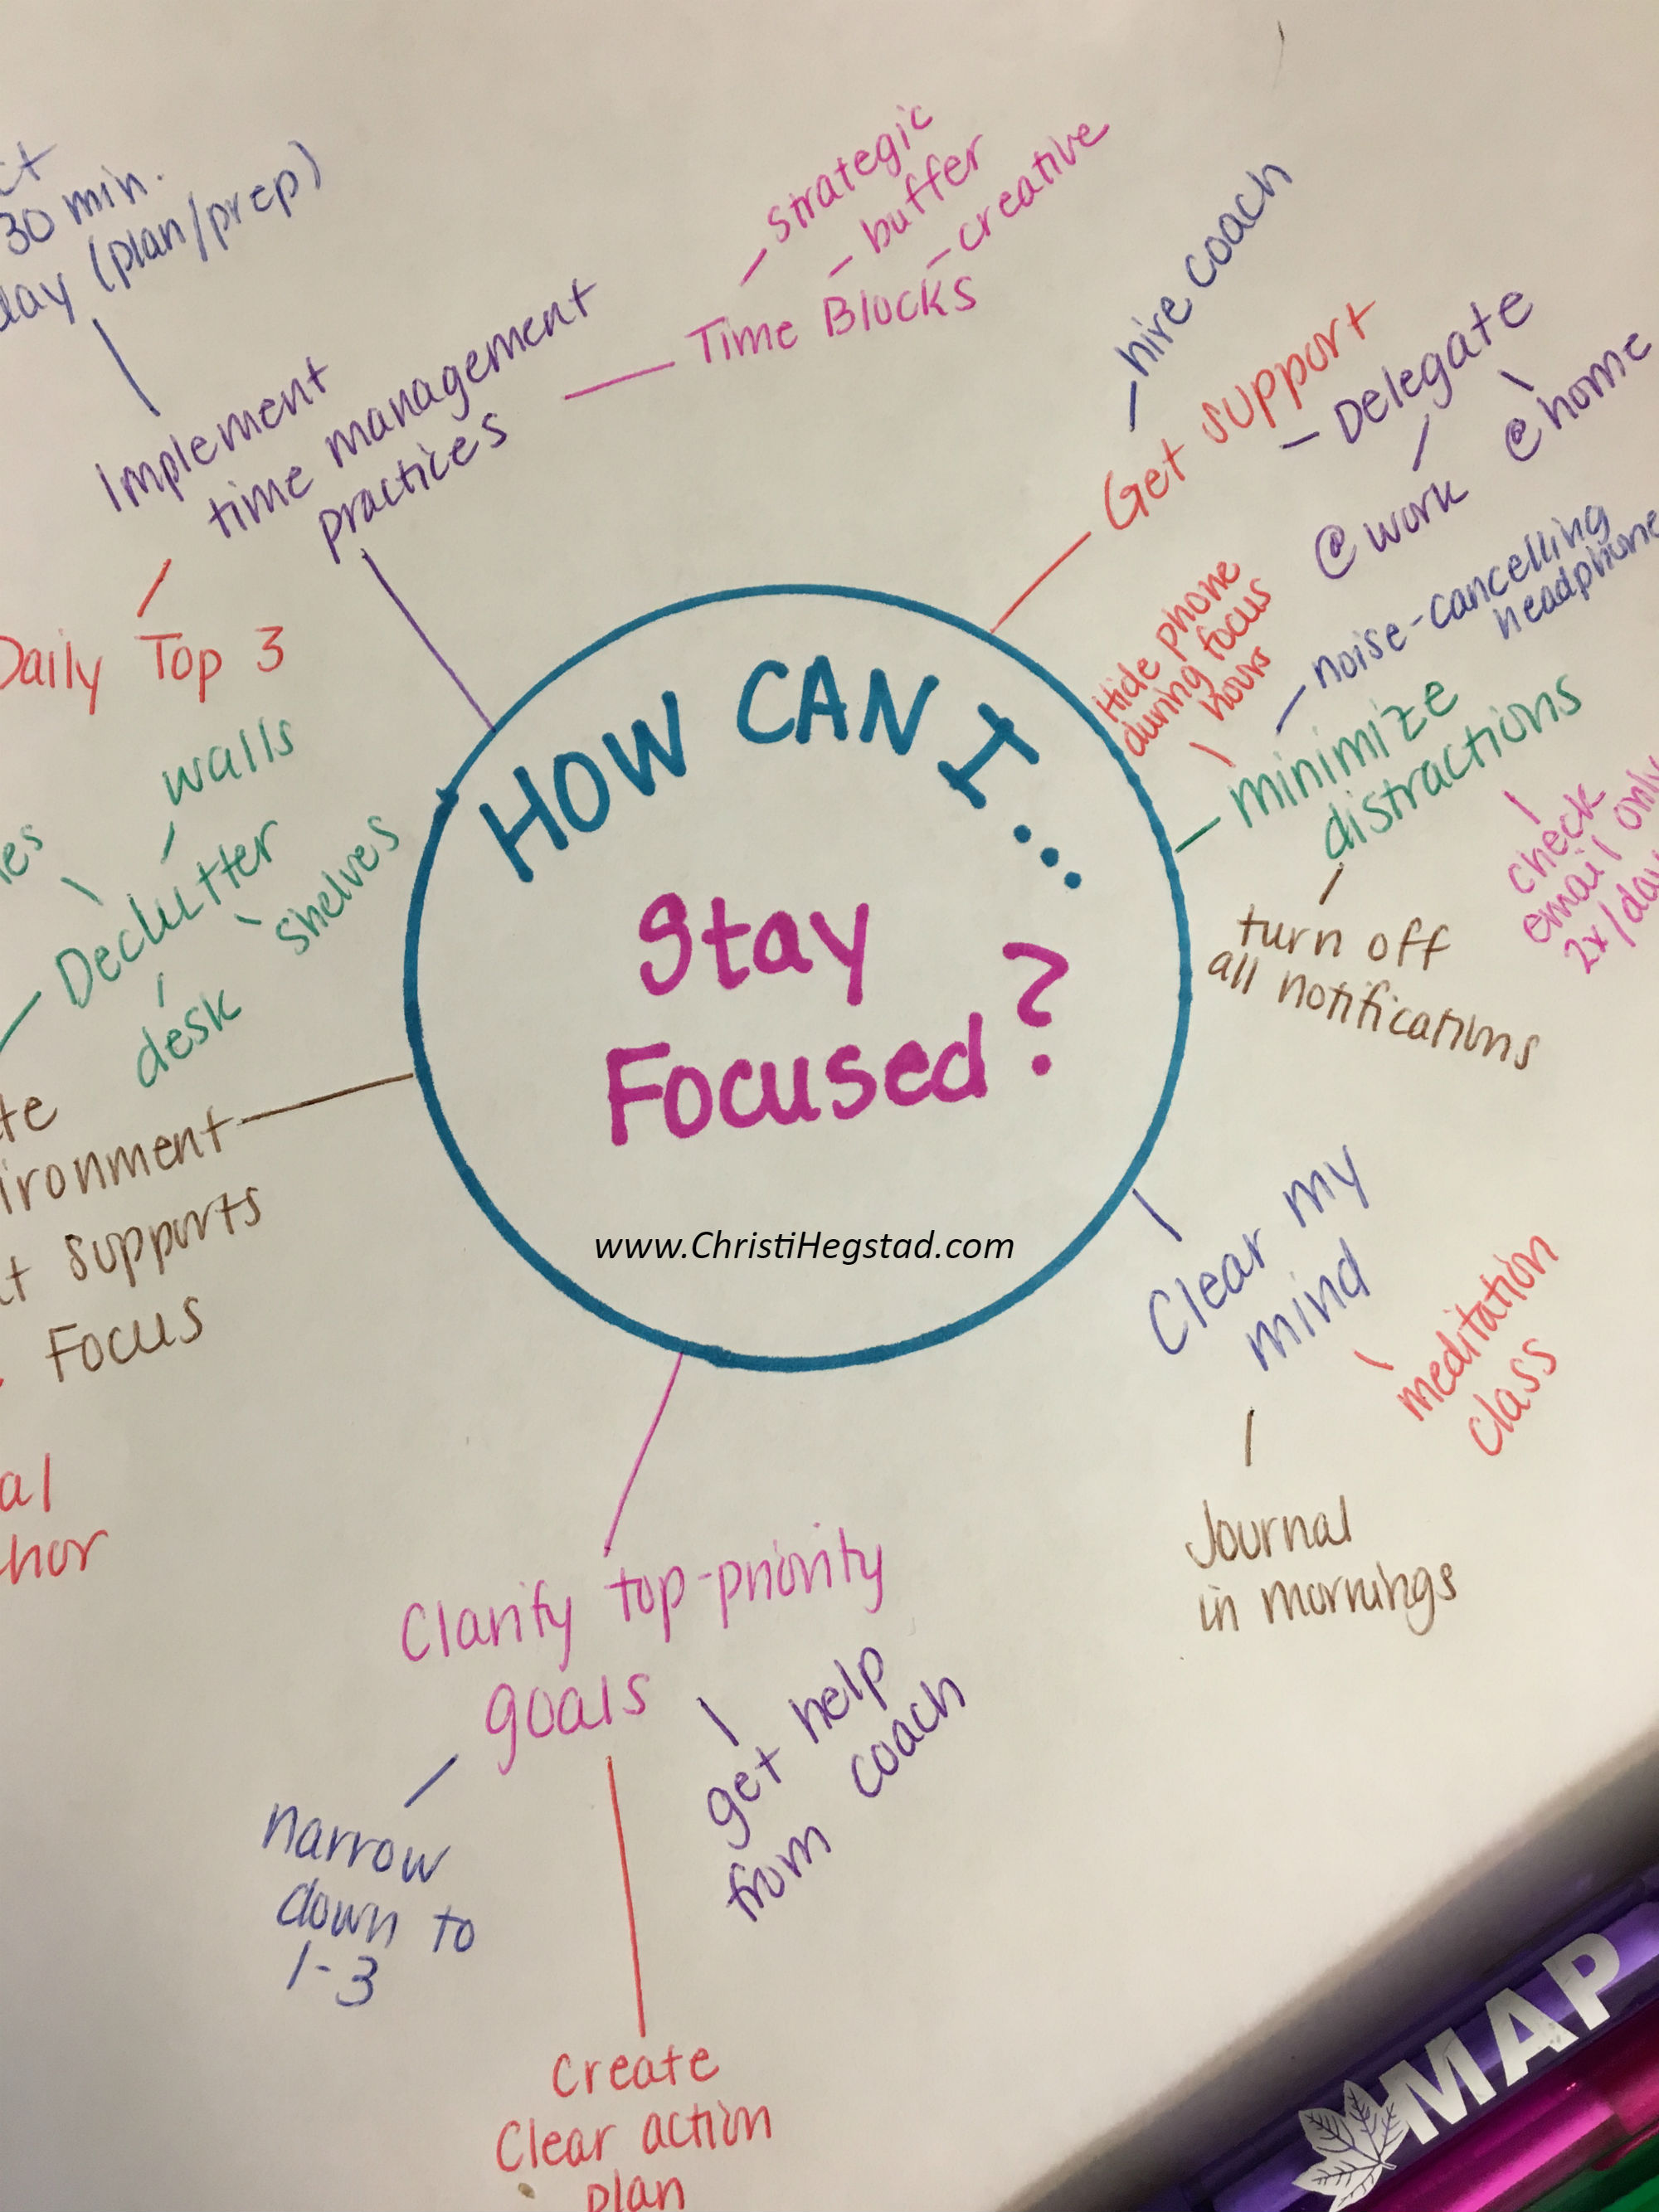 30 min.
day (plan/prep)
Implement
time management
practices
Time Blocks
strategic
buffer
creative
Daily Top 3
hire coach
Get support
Delegate
@ work
@ home
Hide phone
during focus
hours
noise-cancelling
minimize
distractions
check
email only
turn off
all notifications
HOW CAN I...
Stay
Focused?
www.ChristiHegstad.com
walls
Declutter
shelves
desk
supports
Focus
Clear my
mind
meditation
class
Journal
in mornings
Clarify top-priority
goals
narrow
down to
1-3
get help
from coach
Create
Clear action
plan
MAP